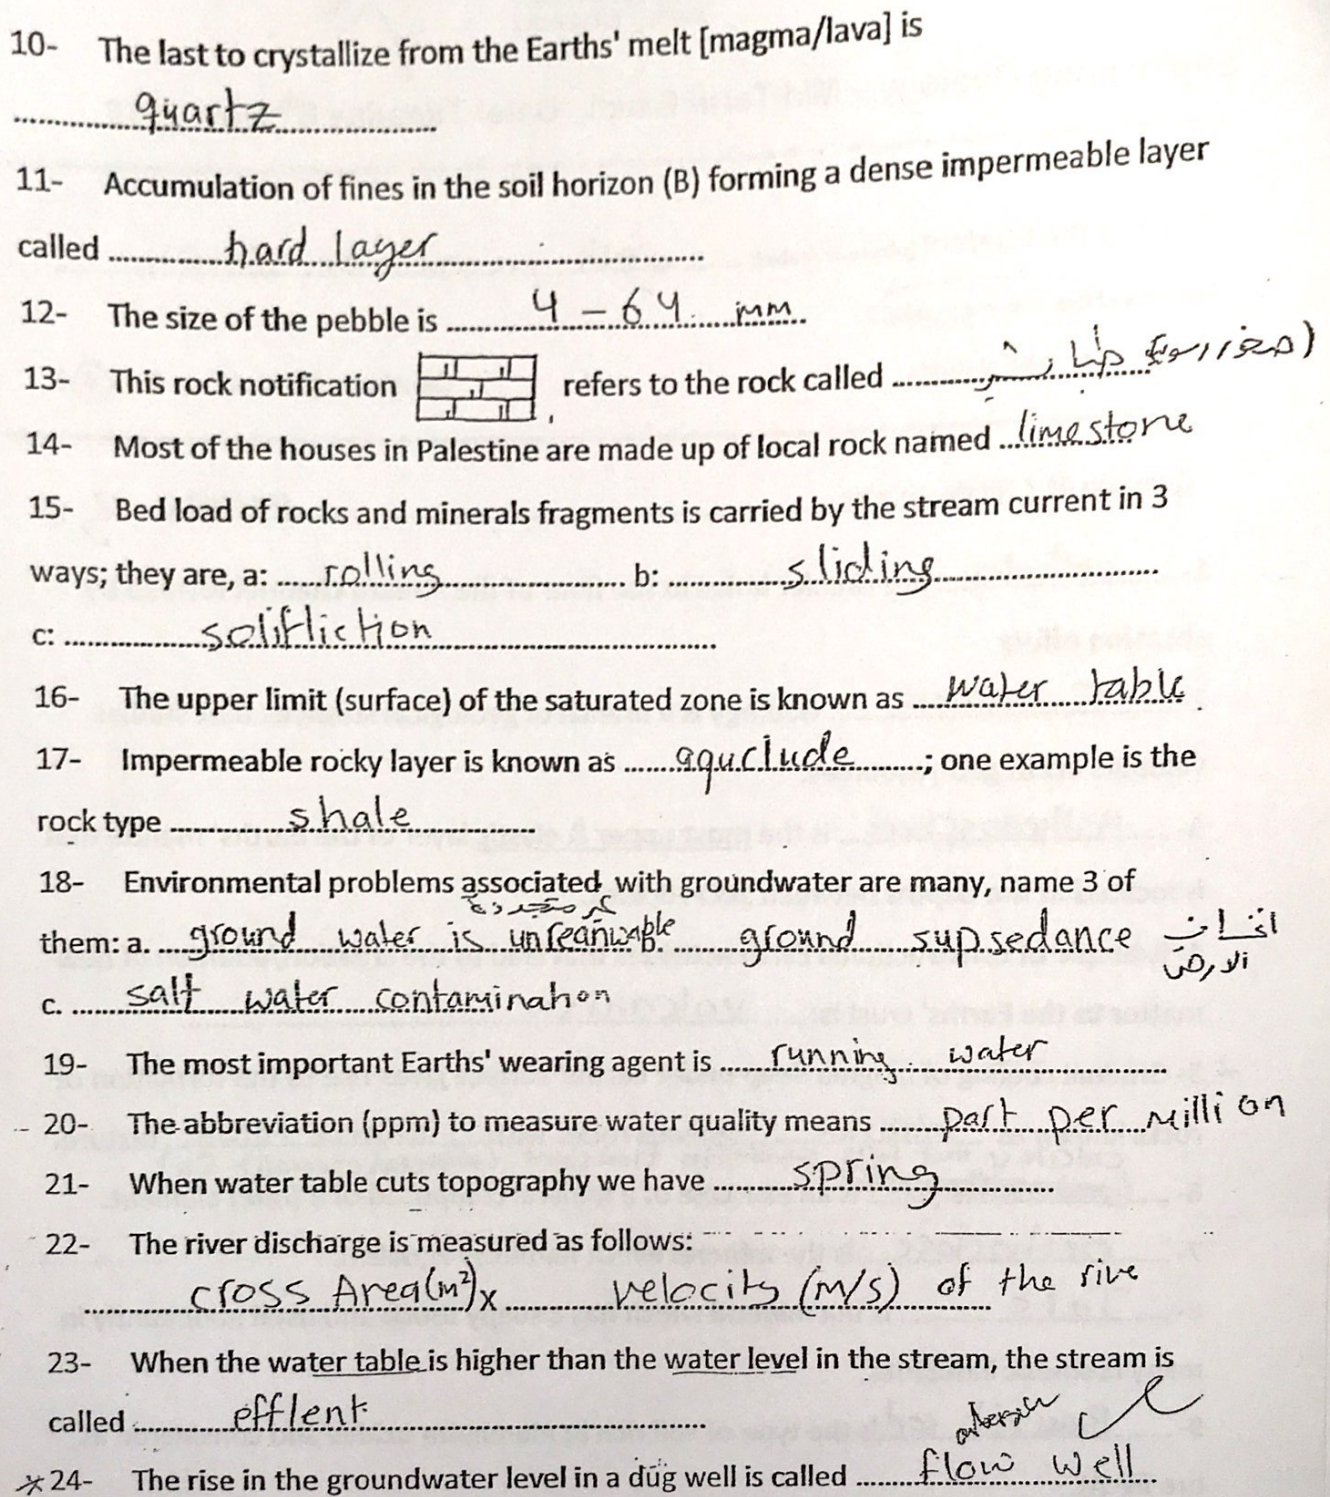 10- The last to crystallize from the Earths' melt [magma/lava] is
quartz
11- Accumulation of fines in the soil horizon (B) forming a dense impermeable layer
called hard layer
12- The size of the pebble is 4 - 64 mm
13- This rock notification refers to the rock called
14- Most of the houses in Palestine are made up of local rock named limestone
15- Bed load of rocks and minerals fragments is carried by the stream current in 3
ways; they are, a: rolling b: sliding
c: solifliction
16- The upper limit (surface) of the saturated zone is known as water table
17- Impermeable rocky layer is known as aquclude; one example is the
rock type shale
18- Environmental problems associated with groundwater are many, name 3 of
غير متجددة
them: a. ground water is unreanwable ground supsedance
الارض
c. salt water contamination
19- The most important Earths' wearing agent is running water
20- The abbreviation (ppm) to measure water quality means part per million
21- When water table cuts topography we have spring
22- The river discharge is measured as follows:
cross Area(m²) x velocity (m/s) of the rive
23- When the water table is higher than the water level in the stream, the stream is
called efflent
24- The rise in the groundwater level in a dug well is called flow well